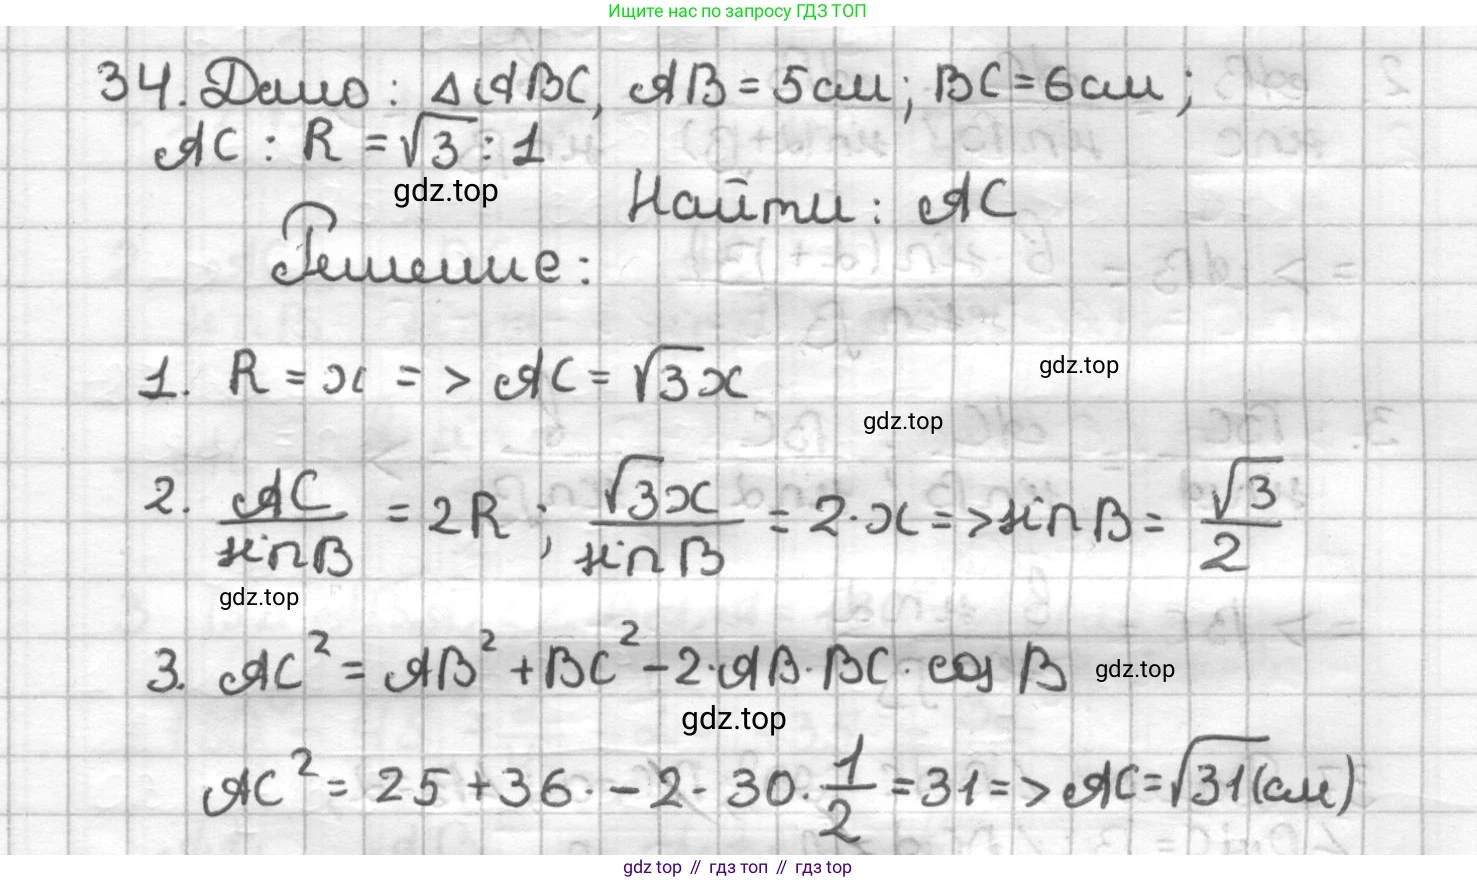 Ищите нас по запросу ГДЗ ТОП
34. Дано: ΔABC, AB = 5 см; BC = 6 см;
AC : R = √3 : 1
gdz.top
Найти: AC
Решение:
1. R = x => AC = √3x
gdz.top
gdz.top
2. AC/sinB = 2R; √3x/sinB = 2·x => sinB = √3/2
gdz.top
3. AC² = AB² + BC² - 2·AB·BC·cos B
gdz.top
gdz.top
AC² = 25 + 36· - 2· 30·1/2 = 31 => AC = √31 (см)
gdz top // гдз топ // гдз top